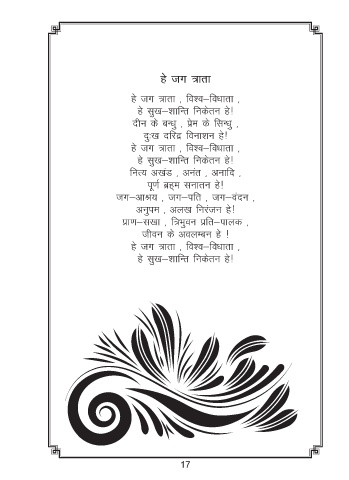 हे जग त्राता
हे जग त्राता , विश्व–विधाता ,
हे सुख–शान्ति निकेतन हे!
दीन के बन्धु , प्रेम के सिन्धु ,
दुःख दरिद्र विनाशन हे!
हे जग त्राता , विश्व–विधाता ,
हे सुख–शान्ति निकेतन हे!
नित्य अखंड , अनंत , अनादि ,
पूर्ण ब्रह्म सनातन हे!
जग–आश्रय , जग–पति , जग–वंदन ,
अनुपम , अलख निरंजन हे!
प्राण–सखा , त्रिभुवन प्रति–पालक ,
जीवन के अवलम्बन हे !
हे जग त्राता , विश्व–विधाता ,
हे सुख–शान्ति निकेतन हे!
17